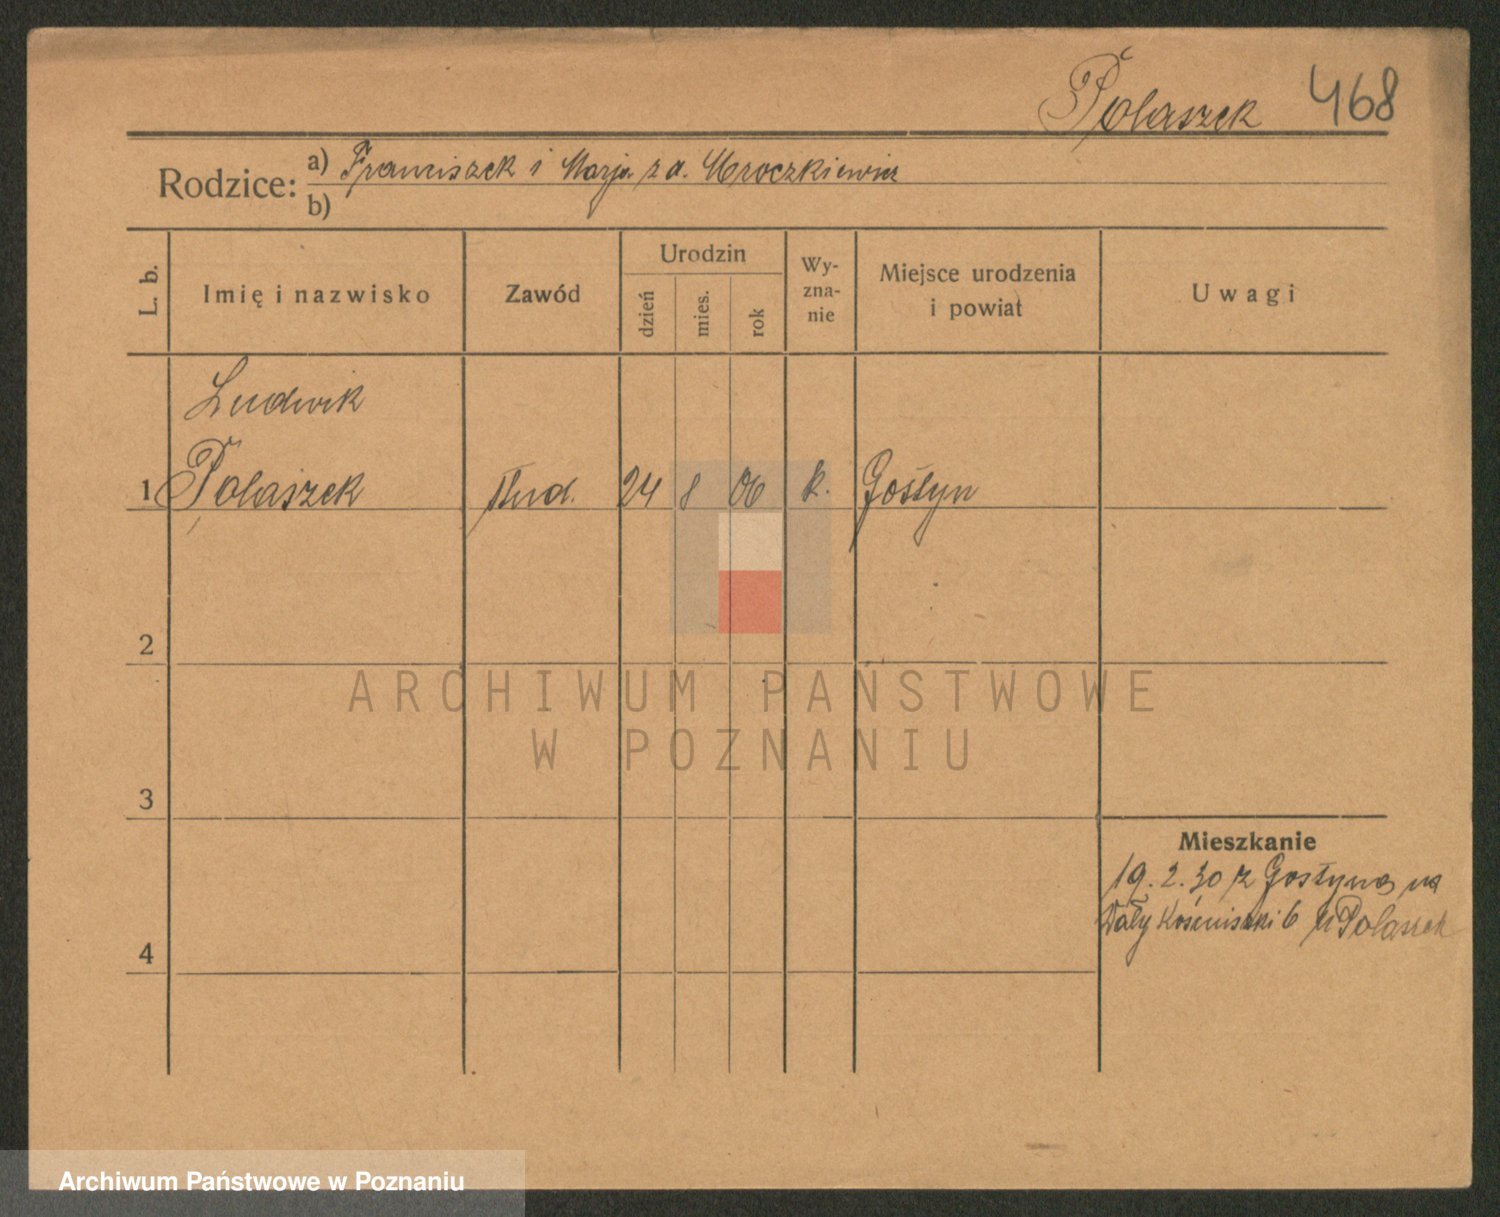 Polaszek 468
Rodzice: a) Franciszek i Marja z d. Mroczkiewicz
b)
L. b. Imię i nazwisko Zawód Urodzin dzień mies. rok Wy-zna-nie Miejsce urodzenia i powiat Uwagi
Ludwik
1 Polaszek stud. 24 8 06 k. Gostyn
2
ARCHIWUM PAŃSTWOWE
W POZNANIU
3
Mieszkanie
19. 2. 30 z Gostynia na
Wały 6 u Polaszek
4
Archiwum Państwowe w Poznaniu